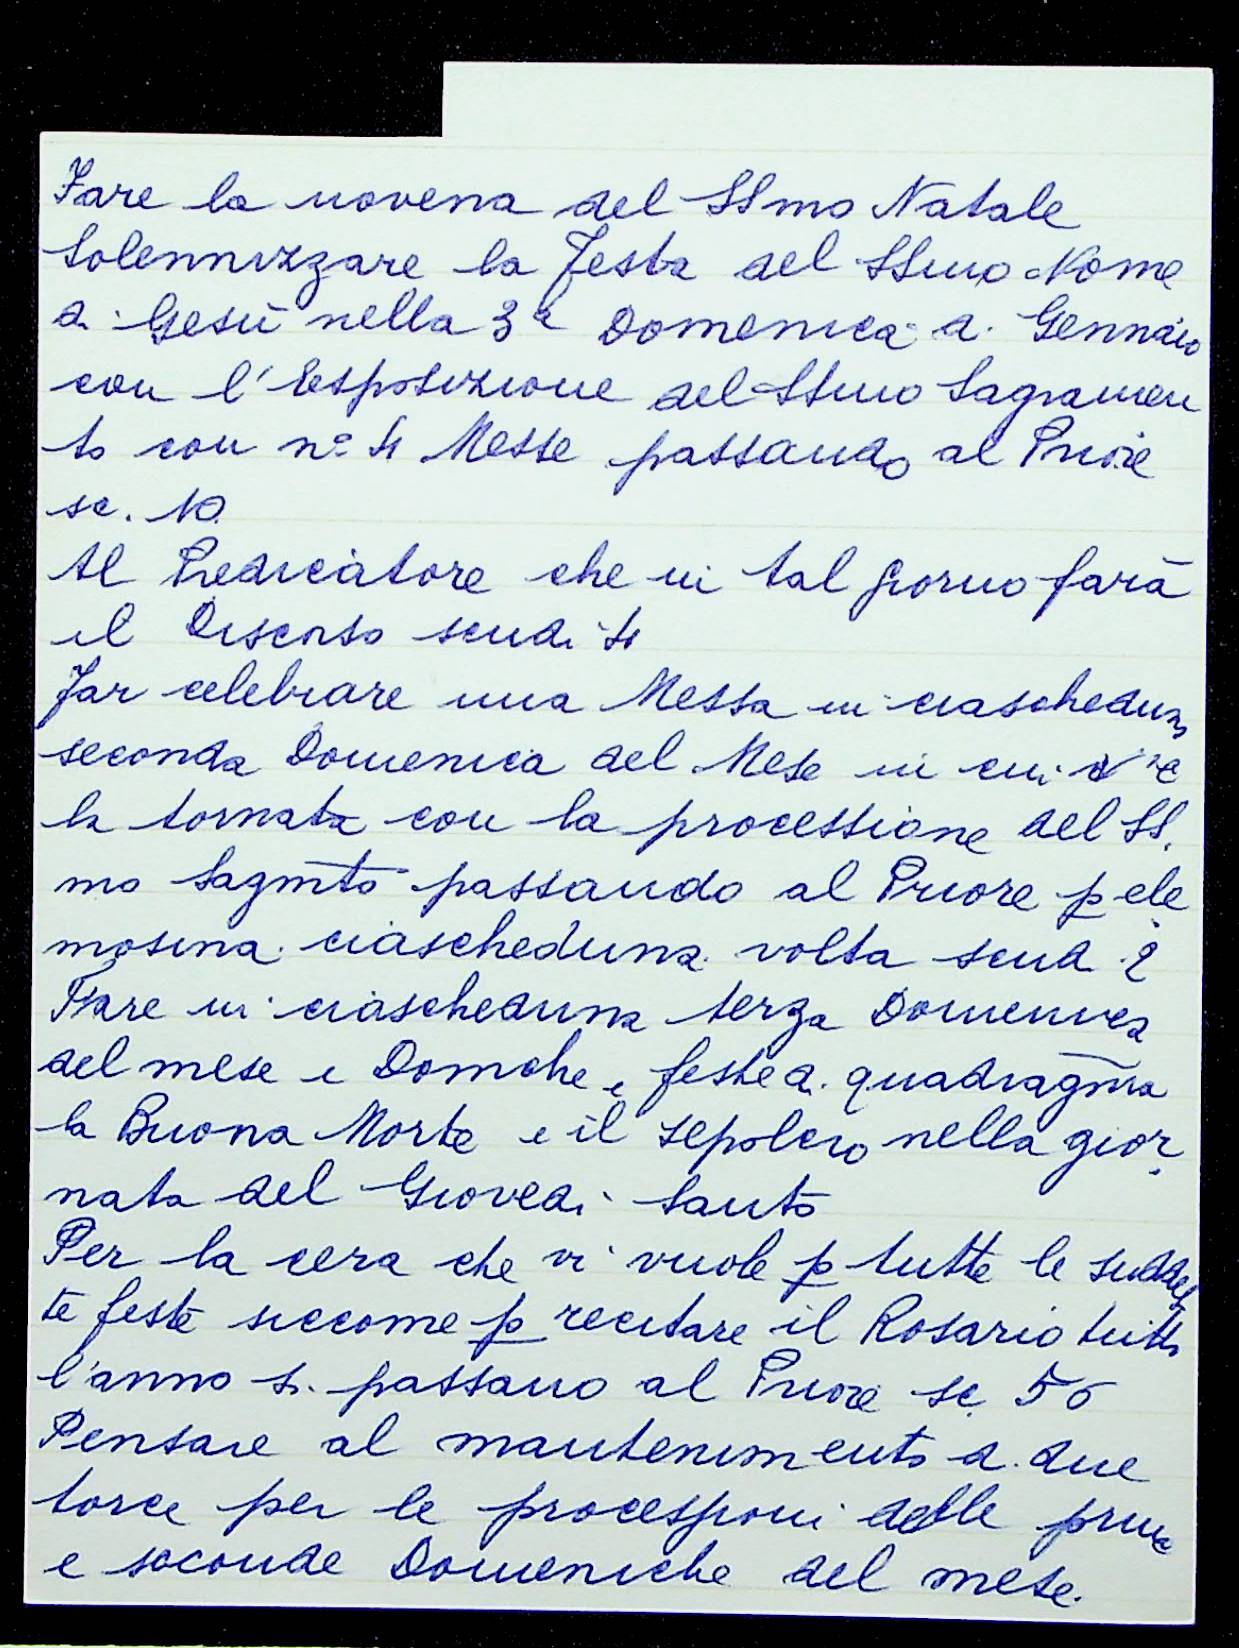 Fare la novena del SSmo Natale
Solennizzare la Festa del SSmo Nome
di Gesù nella 3ª Domenica di Gennaio
con l'Esposizione del SSmo Sagramen
to con n° 4 Messe passando al Priore
sc. 10.
Al Predicatore che in tal giorno farà
il Discorso scudi 4
Far celebrare una Messa in ciascheduna
seconda Domenica del Mese in cui v'è
la tornata con la processione del SS.
mo Sagmto passando al Priore p ele
mosina ciascheduna volta scudi 2
Fare in ciascheduna terza Domenica
del mese e Domche e feste di quadragma
la Buona Morte e il sepolcro nella gior
nata del Giovedi Santo
Per la cera che vi vuole p tutte le suddet
te feste siccome p recitare il Rosario tutto
l'anno si passano al Priore sc. 56
Pensare al mantenimento di due
torce per le processioni delle prime
e seconde Domeniche del mese.